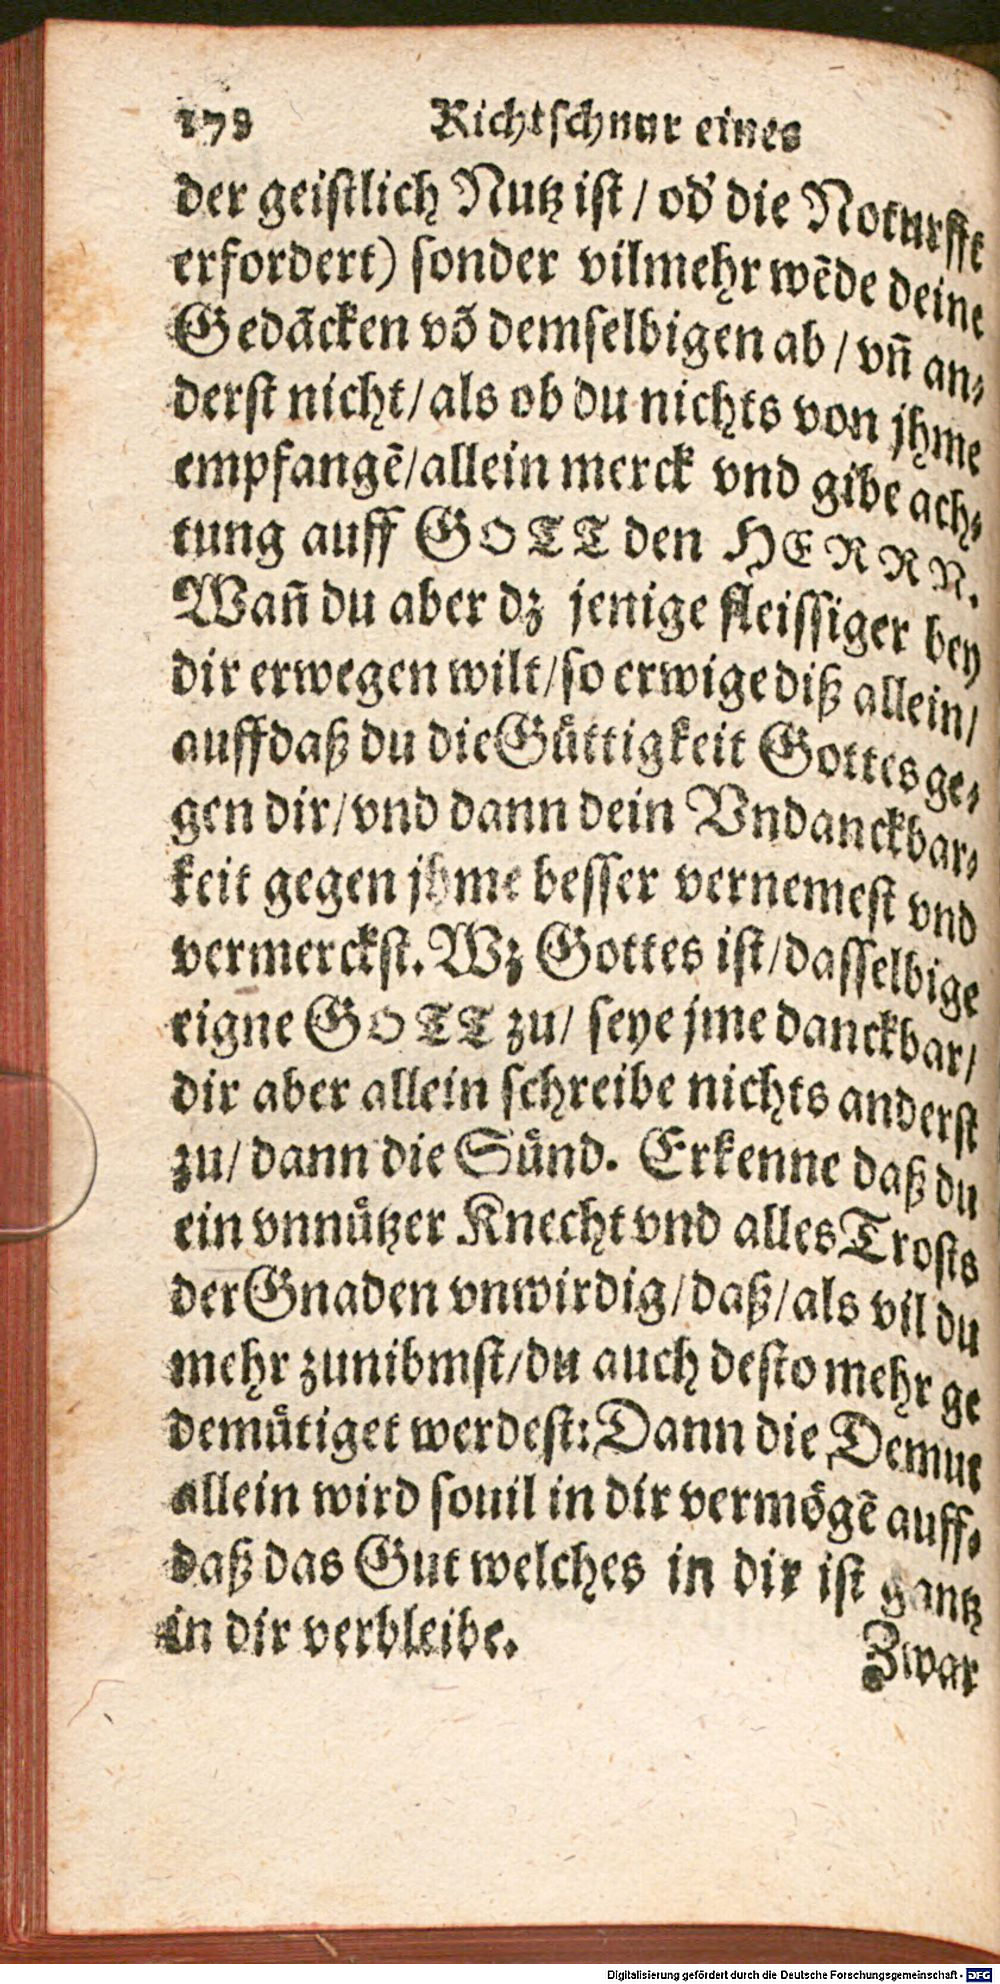 178 Richtſchnur eines
der geiſtlich Nutz iſt / od' die Noturfft
erfordert) ſonder vilmehr wẽde deine
Gedãcken võ demſelbigen ab / vñ an⸗
derſt nicht / als ob du nichts von jhme
empfangẽ / allein merck vnd gibe ach⸗
tung auff GOTT den HERRN.
Wañ du aber dz jenige fleiſſiger bey
dir erwegen wilt / ſo erwige diß allein /
auffdaß du die Gůttigkeit Gottes ge⸗
gen dir / vnd dann dein Vndanckbar⸗
keit gegen jhme beſſer vernemeſt vnd
vermerckſt. Wz Gottes iſt / daſſelbige
eigne GOTT zu / ſeye jme danckbar /
dir aber allein ſchreibe nichts anderſt
zu / dann die Suͤnd. Erkenne daß du
ein vnnuͤtzer Knecht vnd alles Troſts
der Gnaden vnwirdig / daß / als vil du
mehr zunibmſt / du auch deſto mehr ge
demuͤtiget werdeſt: Dann die Demut
allein wird ſouil in dir vermoͤgẽ auff⸗
daß das Gut welches in dir iſt gantz
in dir verbleibe.
Zwar
Digitalisierung gefördert durch die Deutsche Forschungsgemeinschaft - DFG